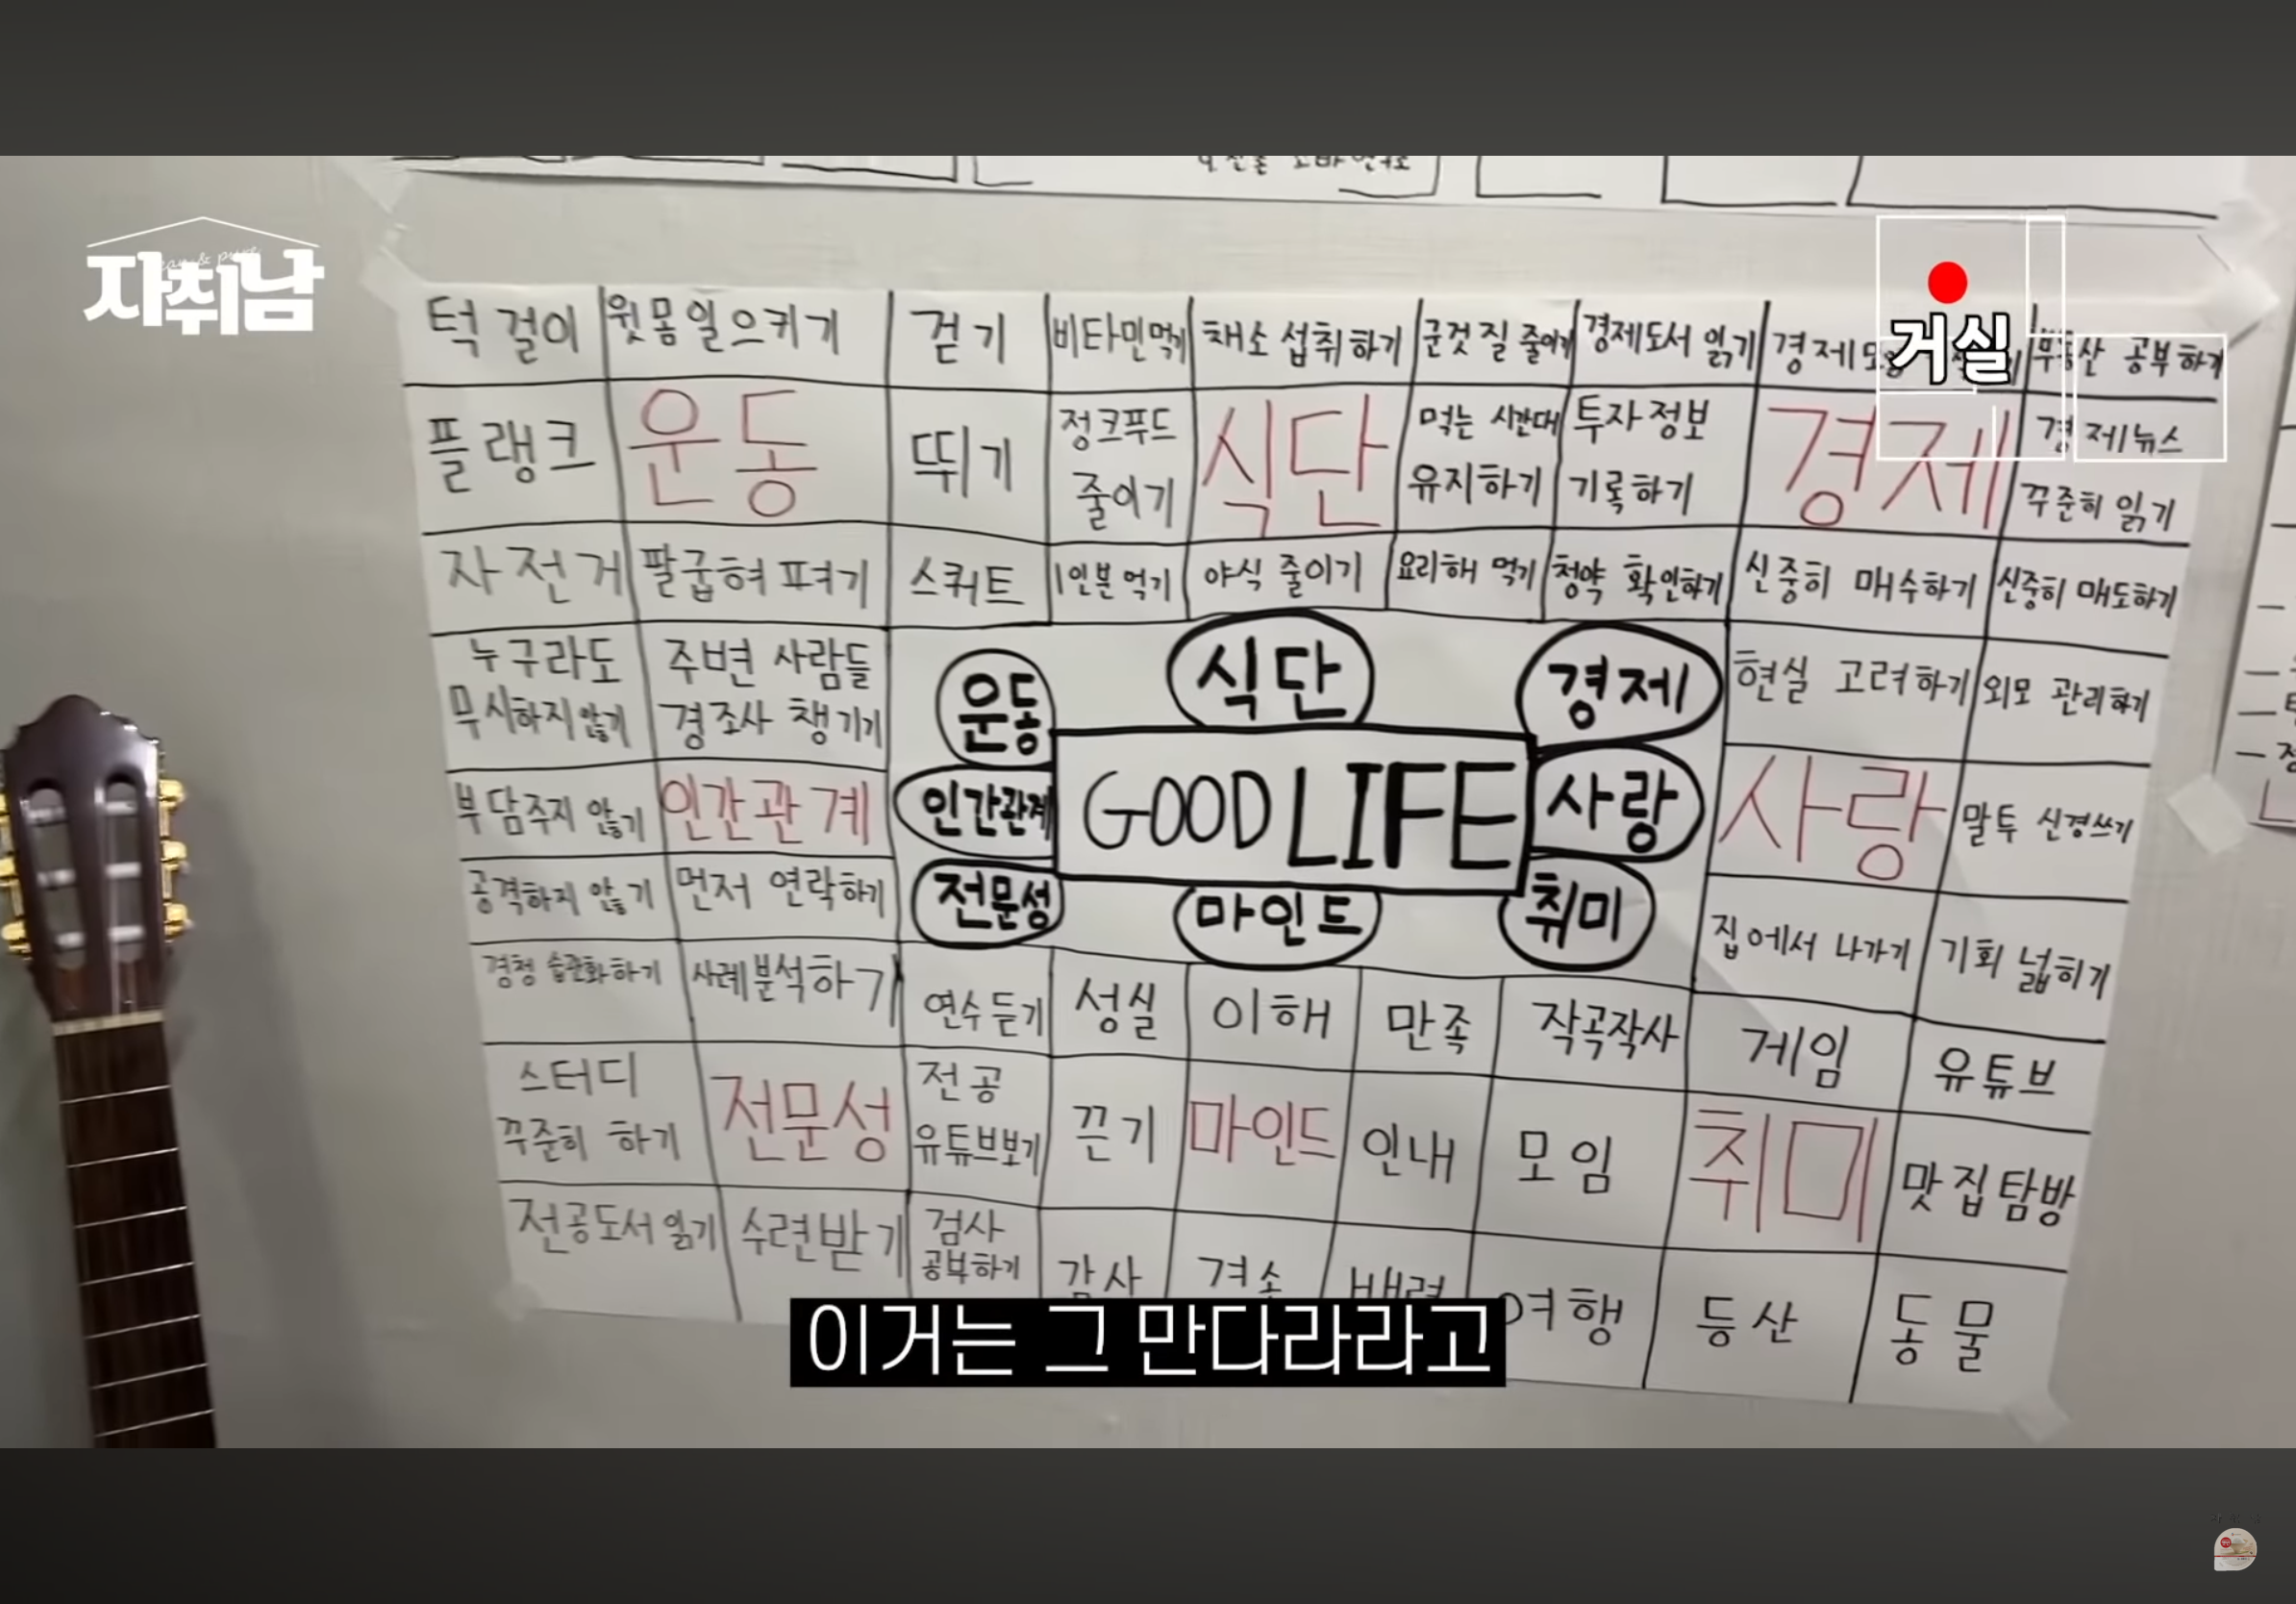 자취남
거실
턱걸이 윗몸일으키기 걷기 비타민먹기 채소 섭취하기 군것질 줄이기 경제도서 읽기 경제모임 부동산 공부하기
플랭크 운동 뛰기 정크푸드 식단 먹는 시간대 투자정보 경제 경제뉴스
줄이기 유지하기 기록하기 꾸준히 읽기
자전거 팔굽혀 펴기 스쿼트 1인분 먹기 야식 줄이기 요리해 먹기 청약 확인하기 신중히 매수하기 신중히 매도하기
누구라도 주변 사람들 운동 식단 경제 현실 고려하기 외모 관리하기
무시하지 않기 경조사 챙기기
부담주지 않기 인간관계 인간관계 GOOD LIFE 사랑 사랑 말투 신경쓰기
공격하지 않기 먼저 연락하기 전문성 마인드 취미 집에서 나가기 기회 넓히기
경청 습관화하기 사례분석하기 연수듣기 성실 이해 만족 작곡작사 게임 유튜브
스터디 전문성 전공 끈기 마인드 인내 모임 취미 맛집탐방
꾸준히 하기 유튜브보기
전공도서 읽기 수련받기 검사 감사 겸손 배려 여행 등산 동물
공부하기
이거는 그 만다라라고